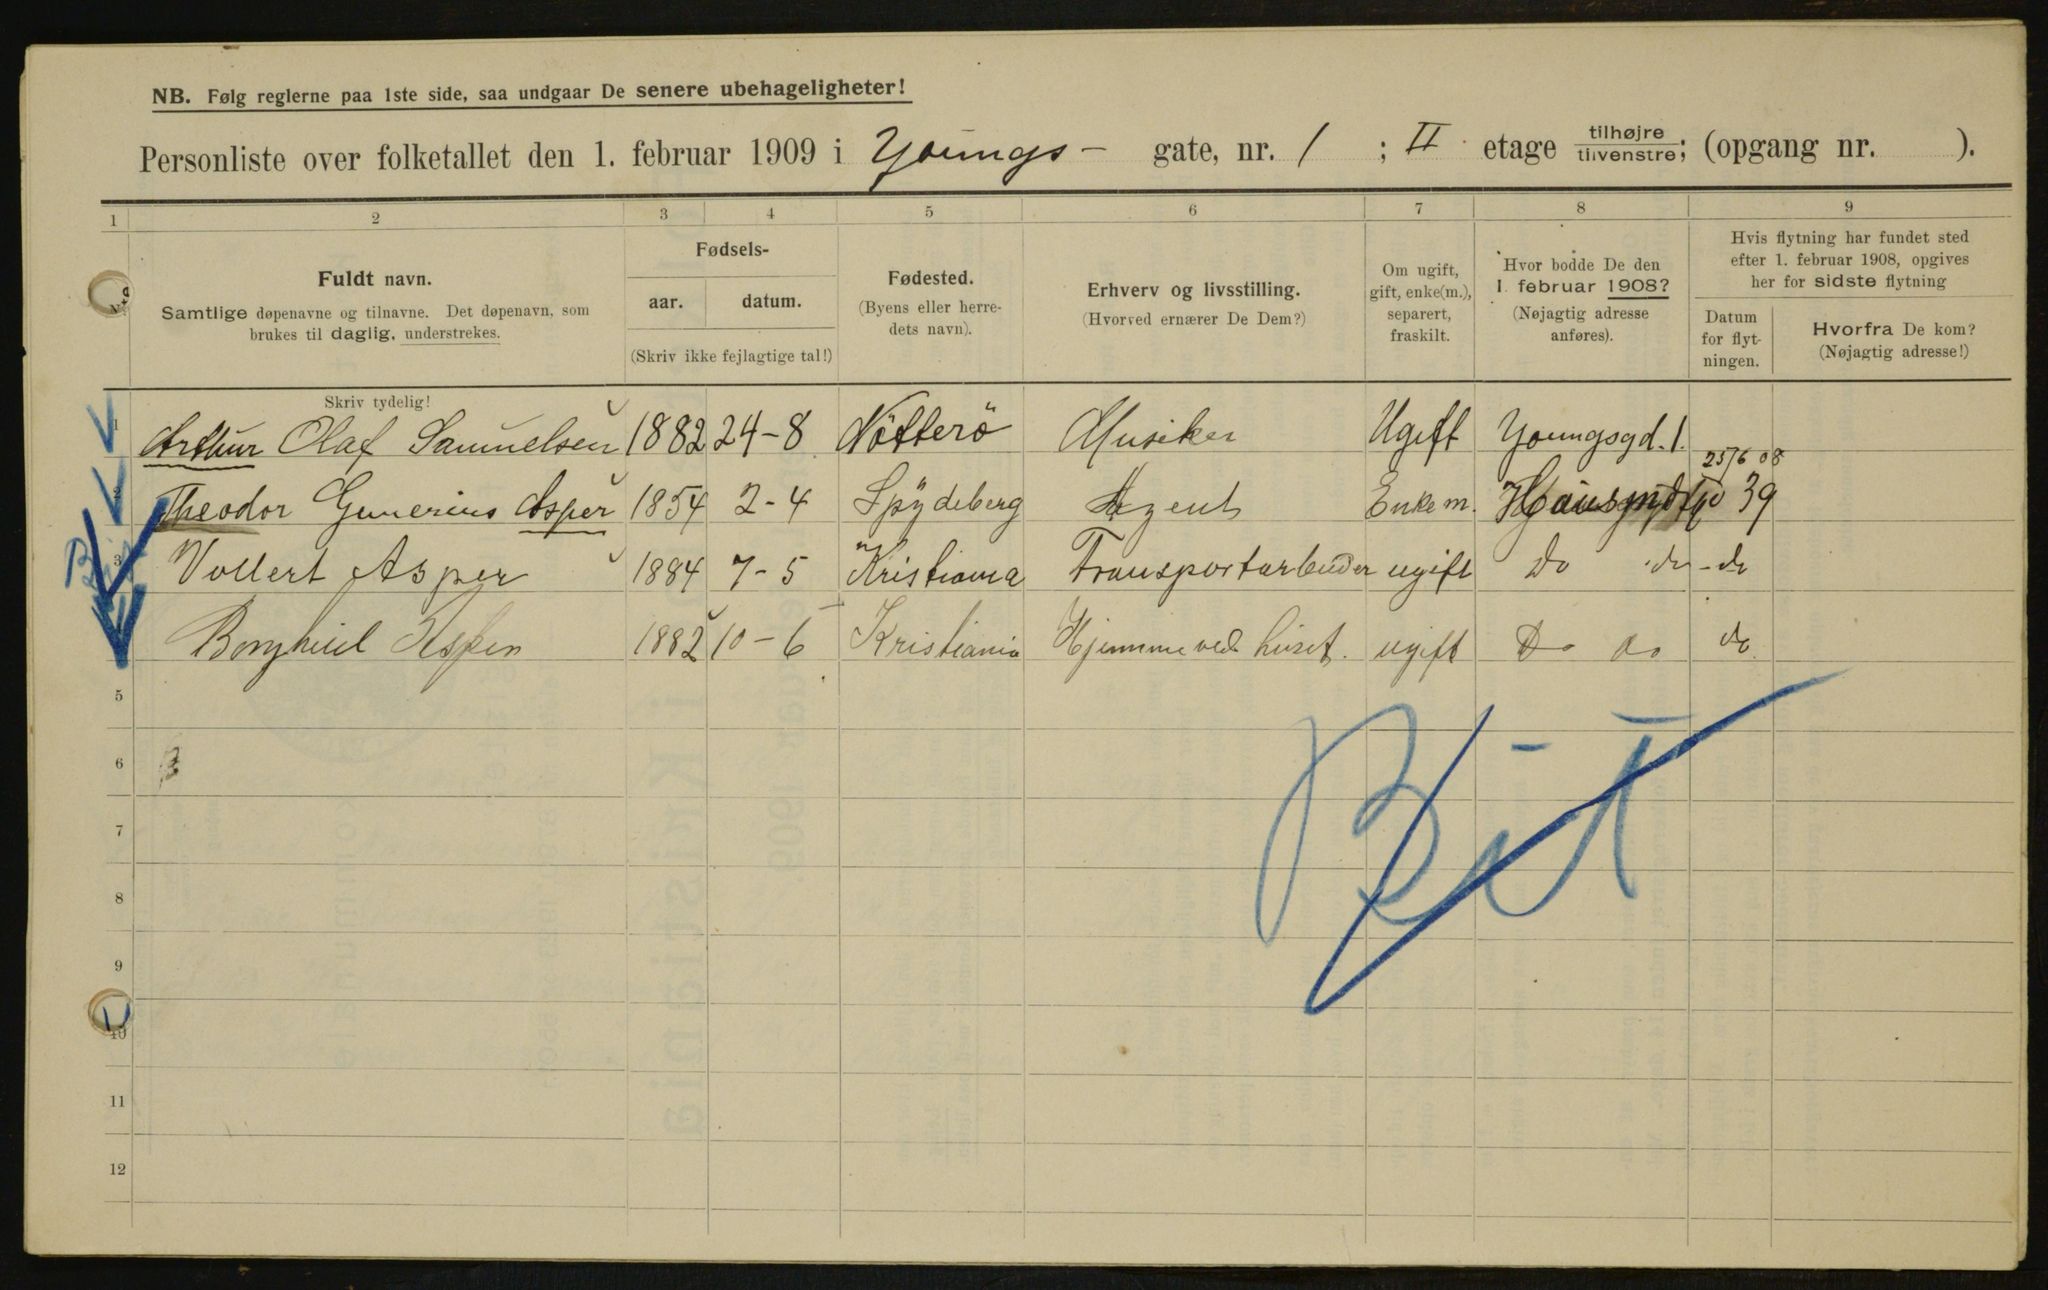 NB. Følg reglerne paa 1ste side, saa undgaar De senere ubehageligheter!
Personliste over folketallet den 1. februar 1909 i Youngs- gate, nr. 1 ; II etage tilhøjre / tilvenstre; (opgang nr. ).
1 2 3 4 5 6 7 8 9
Fuldt navn.
Samtlige døpenavne og tilnavne. Det døpenavn, som
brukes til daglig, understrekes.
Skriv tydelig!
Fødsels-
aar. datum.
(Skriv ikke fejlagtige tal!)
Fødested.
(Byens eller herre-
dets navn).
Erhverv og livsstilling.
(Hvorved ernærer De Dem?)
Om ugift,
gift, enke(m.),
separert,
fraskilt.
Hvor bodde De den
1. februar 1908?
(Nøjagtig adresse
anføres).
Hvis flytning har fundet sted
efter 1. februar 1908, opgives
her for sidste flytning
Datum
for flyt-
ningen.
Hvorfra De kom?
(Nøjagtig adresse!)
1 Arthur Olaf Samuelsen 1882 24-8 Nötterö Musiker Ugift Youngsgd. 1.
25/6 08
2 Theodor Gunerius Asper 1854 2-4 Spydeberg Agent Enkem. 39
3 Vollert Asper 1884 7-5 Kristiania Transportarbeider ugift Do do - do
Borghild Asper 1882 10-6 Kristiania Hjemme ved huset. ugift Do do do
5
6
7
8
9
10
11
12